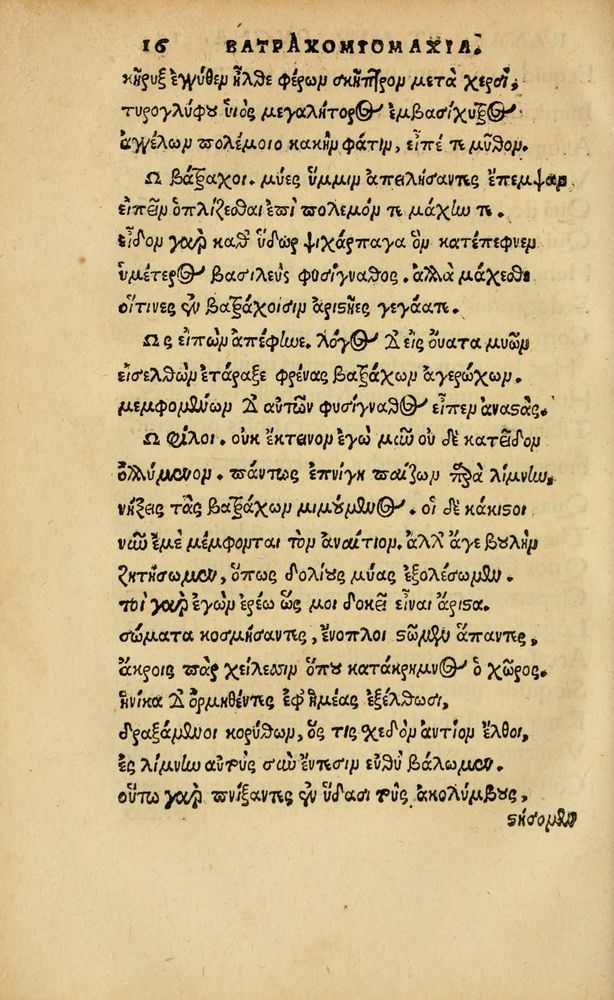 16 ΒΑΤΡΑΧΟΜΥΟΜΑΧΙΑ.
κῆρυξ ἐγγύθεν ἦλθε φέρων σκῆπτρον μετὰ χερσὶ,
τυρογλύφου ὑιὸς μεγαλήτορος ἐμβασίχυτρος
ἀγγέλων πολέμοιο κακὴν φάτιν, εἶπέ τε μῦθον.
Ω βάτραχοι. μύες ὕμμιν ἀπειλήσαντες ἔπεμψαν
εἰπεῖν ὁπλίζεσθαι ἐπὶ πολεμόν τε μάχην τε.
εἶδον γὰρ καθ' ὕδωρ ψιχάρπαγα ὃν κατέπεφνεν
ὑμέτερος βασιλεὺς φυσίγναθος. ἀλλὰ μάχεσθε
οἵτινες ἐν βατράχοισιν ἀριστῆες γεγάατε.
Ως εἰπὼν ἀπέφηνε. λόγος δ' εἰς ὄυατα μυῶν
εἰσελθὼν ἐτάραξε φρένας βατράχων ἀγερώχων.
μεμφομένων δ' αὐτῶν φυσίγναθος εἶπεν ἀναστάς.
Ω φίλοι. οὐκ ἔκτεινον ἐγὼ μῦν οὐ δὲ κατεῖδον
ὀλλύμενον. πάντως ἐπνίγη παίζων παρὰ λίμνην,
νήξεις τὰς βατράχων μιμούμενος. οἱ δὲ κάκιστοι
νῦν ἐμὲ μέμφονται τὸν ἀναίτιον. ἀλλ' ἄγε βουλὴν
ζητήσωμεν, ὅπως δολίους μύας ἐξολέσωμεν.
τοὶ γὰρ ἐγὼν ἐρέω ὥς μοι δοκεῖ εἶναι ἄριστα.
σώματα κοσμήσαντες, ἔνοπλοι στῶμεν ἅπαντες,
ἄκροις πὰρ χείλεσσιν ὅπου κατάκρημνος ὁ χῶρος.
ἡνίκα δ' ὁρμηθέντες ἐφ' ἡμέας ἐξέλθωσι,
δραξάμενοι κορύθων, ὅς τις σχεδὸν ἀντίον ἔλθοι,
ἐς λίμνην αὐτοὺς σὺν ἔντεσιν εὐθὺ βάλωμεν.
οὕτω γὰρ πνίξαντες ἐν ὕδασι τοὺς ἀκολύμβους,
στήσομεν